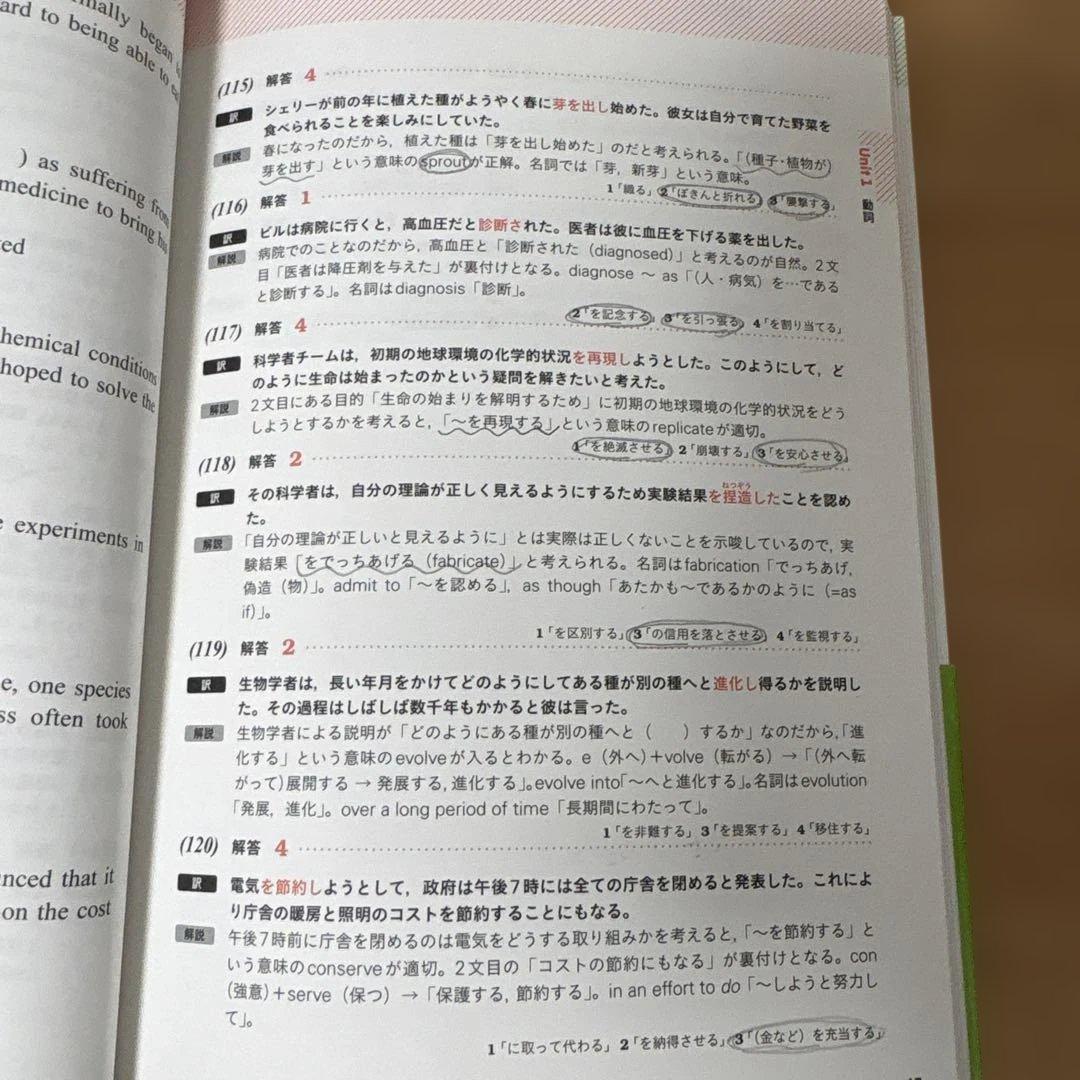 rmally began
ard to being able to
) as suffering from
medicine to bring his
ted
hemical conditions
hoped to solve the
e experiments in
e, one species
ss often took
nced that it
on the cost
Unit 1 動詞
(115) 解答 4
訳 シェリーが前の年に植えた種がようやく春に芽を出し始めた。彼女は自分で育てた野菜を
食べられることを楽しみにしていた。
解説 春になったのだから，植えた種は「芽を出し始めた」のだと考えられる。「(種子・植物が)
芽を出す」という意味のsproutが正解。名詞では「芽，新芽」という意味。
1「織る」 2「ぽきんと折れる」 3「襲撃する」
(116) 解答 1
訳 ビルは病院に行くと，高血圧だと診断された。医者は彼に血圧を下げる薬を出した。
解説 病院でのことなのだから，高血圧と「診断された（diagnosed）」と考えるのが自然。2文
目「医者は降圧剤を与えた」が裏付けとなる。diagnose ～ as「(人・病気）を…である
と診断する」。名詞はdiagnosis「診断」。
2「を記念する」 3「を引っ張る」 4「を割り当てる」
(117) 解答 4
訳 科学者チームは，初期の地球環境の化学的状況を再現しようとした。このようにして，ど
のように生命は始まったのかという疑問を解きたいと考えた。
解説 2文目にある目的「生命の始まりを解明するため」に初期の地球環境の化学的状況をどう
しようとするかを考えると，「～を再現する」という意味のreplicateが適切。
1「を絶滅させる」 2「崩壊する」 3「を安心させる」
(118) 解答 2
訳 その科学者は，自分の理論が正しく見えるようにするため実験結果を捏造（ねつぞう）したことを認め
た。
解説 「自分の理論が正しいと見えるように」とは実際は正しくないことを示唆しているので，実
験結果「をでっちあげる（fabricate）」と考えられる。名詞はfabrication「でっちあげ，
偽造（物）」。admit to「～を認める」，as though「あたかも～であるかのように（=as
if）」。
1「を区別する」 3「の信用を落とさせる」 4「を監視する」
(119) 解答 2
訳 生物学者は，長い年月をかけてどのようにしてある種が別の種へと進化し得るかを説明し
た。その過程はしばしば数千年もかかると彼は言った。
解説 生物学者による説明が「どのようにある種が別の種へと（　　）するか」なのだから，「進
化する」という意味のevolveが入るとわかる。e（外へ）+volve（転がる）→「(外へ転
がって)展開する → 発展する，進化する」。evolve into「～へと進化する」。名詞はevolution
「発展，進化」。over a long period of time「長期間にわたって」。
1「を非難する」 3「を提案する」 4「移住する」
(120) 解答 4
訳 電気を節約しようとして，政府は午後7時には全ての庁舎を閉めると発表した。これによ
り庁舎の暖房と照明のコストを節約することにもなる。
解説 午後7時前に庁舎を閉めるのは電気をどうする取り組みかを考えると，「～を節約する」と
いう意味のconserveが適切。2文目の「コストの節約にもなる」が裏付けとなる。con
(強意）+serve（保つ）→「保護する，節約する」。in an effort to do「～しようと努力し
て」。
1「に取って代わる」 2「を納得させる」 3「(金など）を充当する」